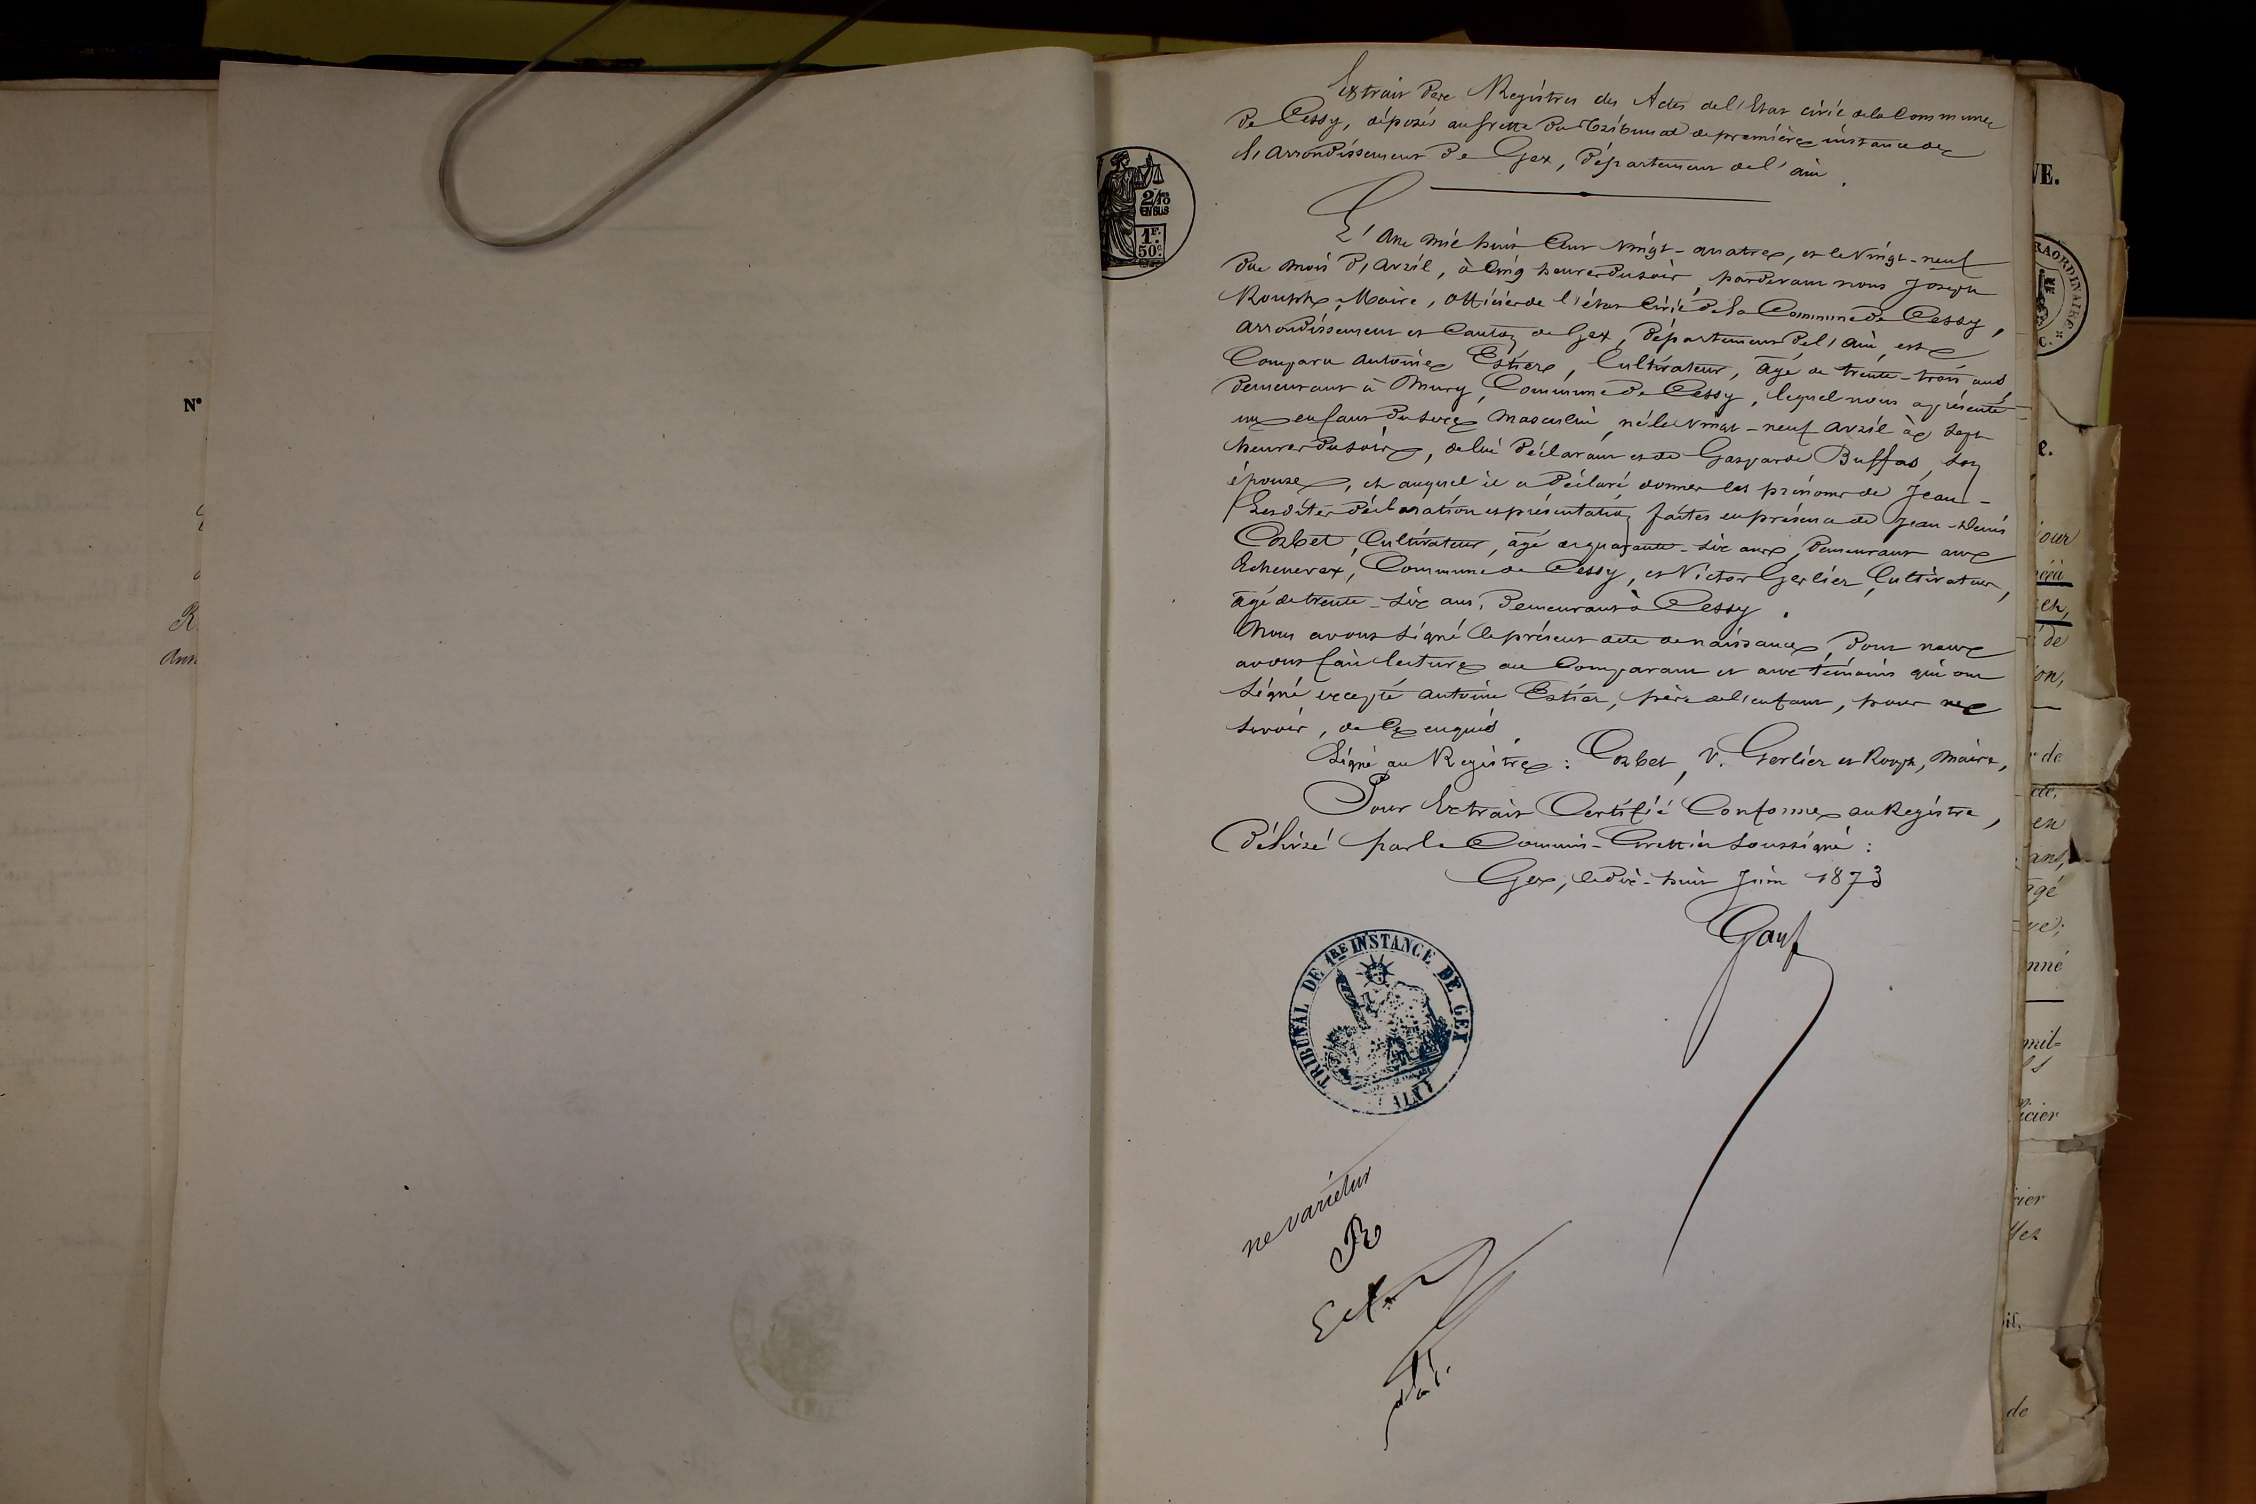 Extrait des Registres des Actes de l'Etat civil de la Commune
de Cessy, déposés au greffe du Tribunal de première instance de
l'arrondissement de Gex, département de l'ain.
L'an mil huit Cent vingt-quatre, et le vingt-neuf
du mois d'avril, à Cinq heures du soir, pardevant nous Joseph
Maire, officier de l'état Civil de la Commune de Cessy,
arrondissement et Canton de Gex, département de l'ain, est
Comparu antoine Estier, Cultivateur, âgé de trente-trois ans,
demeurant à Mury, Commune de Cessy, lequel nous a présenté
un enfant du sexe masculin, né le vingt-neuf avril à sept
heures du soir, de lui déclarant et de Gasparde Buffas, son
épouse, et auquel il a déclaré donner les prénoms de Jean-
Lesdites déclaration et présentation faites en présence de Jean-Denis
Corbet, Cultivateur, âgé de quarante-six ans, demeurant aux
Echenevex, Commune de Cessy, et Victor Gerlier, Cultivateur,
âgé de trente-six ans, demeurant à Cessy.
Nous avons signé le présent acte de naissance, dont nous
avons fait lecture au Comparant et aux témoins qui ont
signé excepté antoine Estier, père de l'enfant, pour ne
savoir, de ce enquis.
Signé au Registre : Corbet, V. Gerlier et Roup, Maire,
Pour Extrait Certifié Conforme au Registre,
délivré par le Commis-Greffier soussigné :
Gex, le dix-huit Juin 1873
TRIBUNAL DE 1RE INSTANCE DE GEX
(AIN)
ne varietur
R
2/10
EN SUS
1F.
50c.
N°
R
Ann
VE.
RAORDINAIRE
C.
e.
jour
de
ion,
de
en
ans,
âgé
nné
mil=
ficier
de